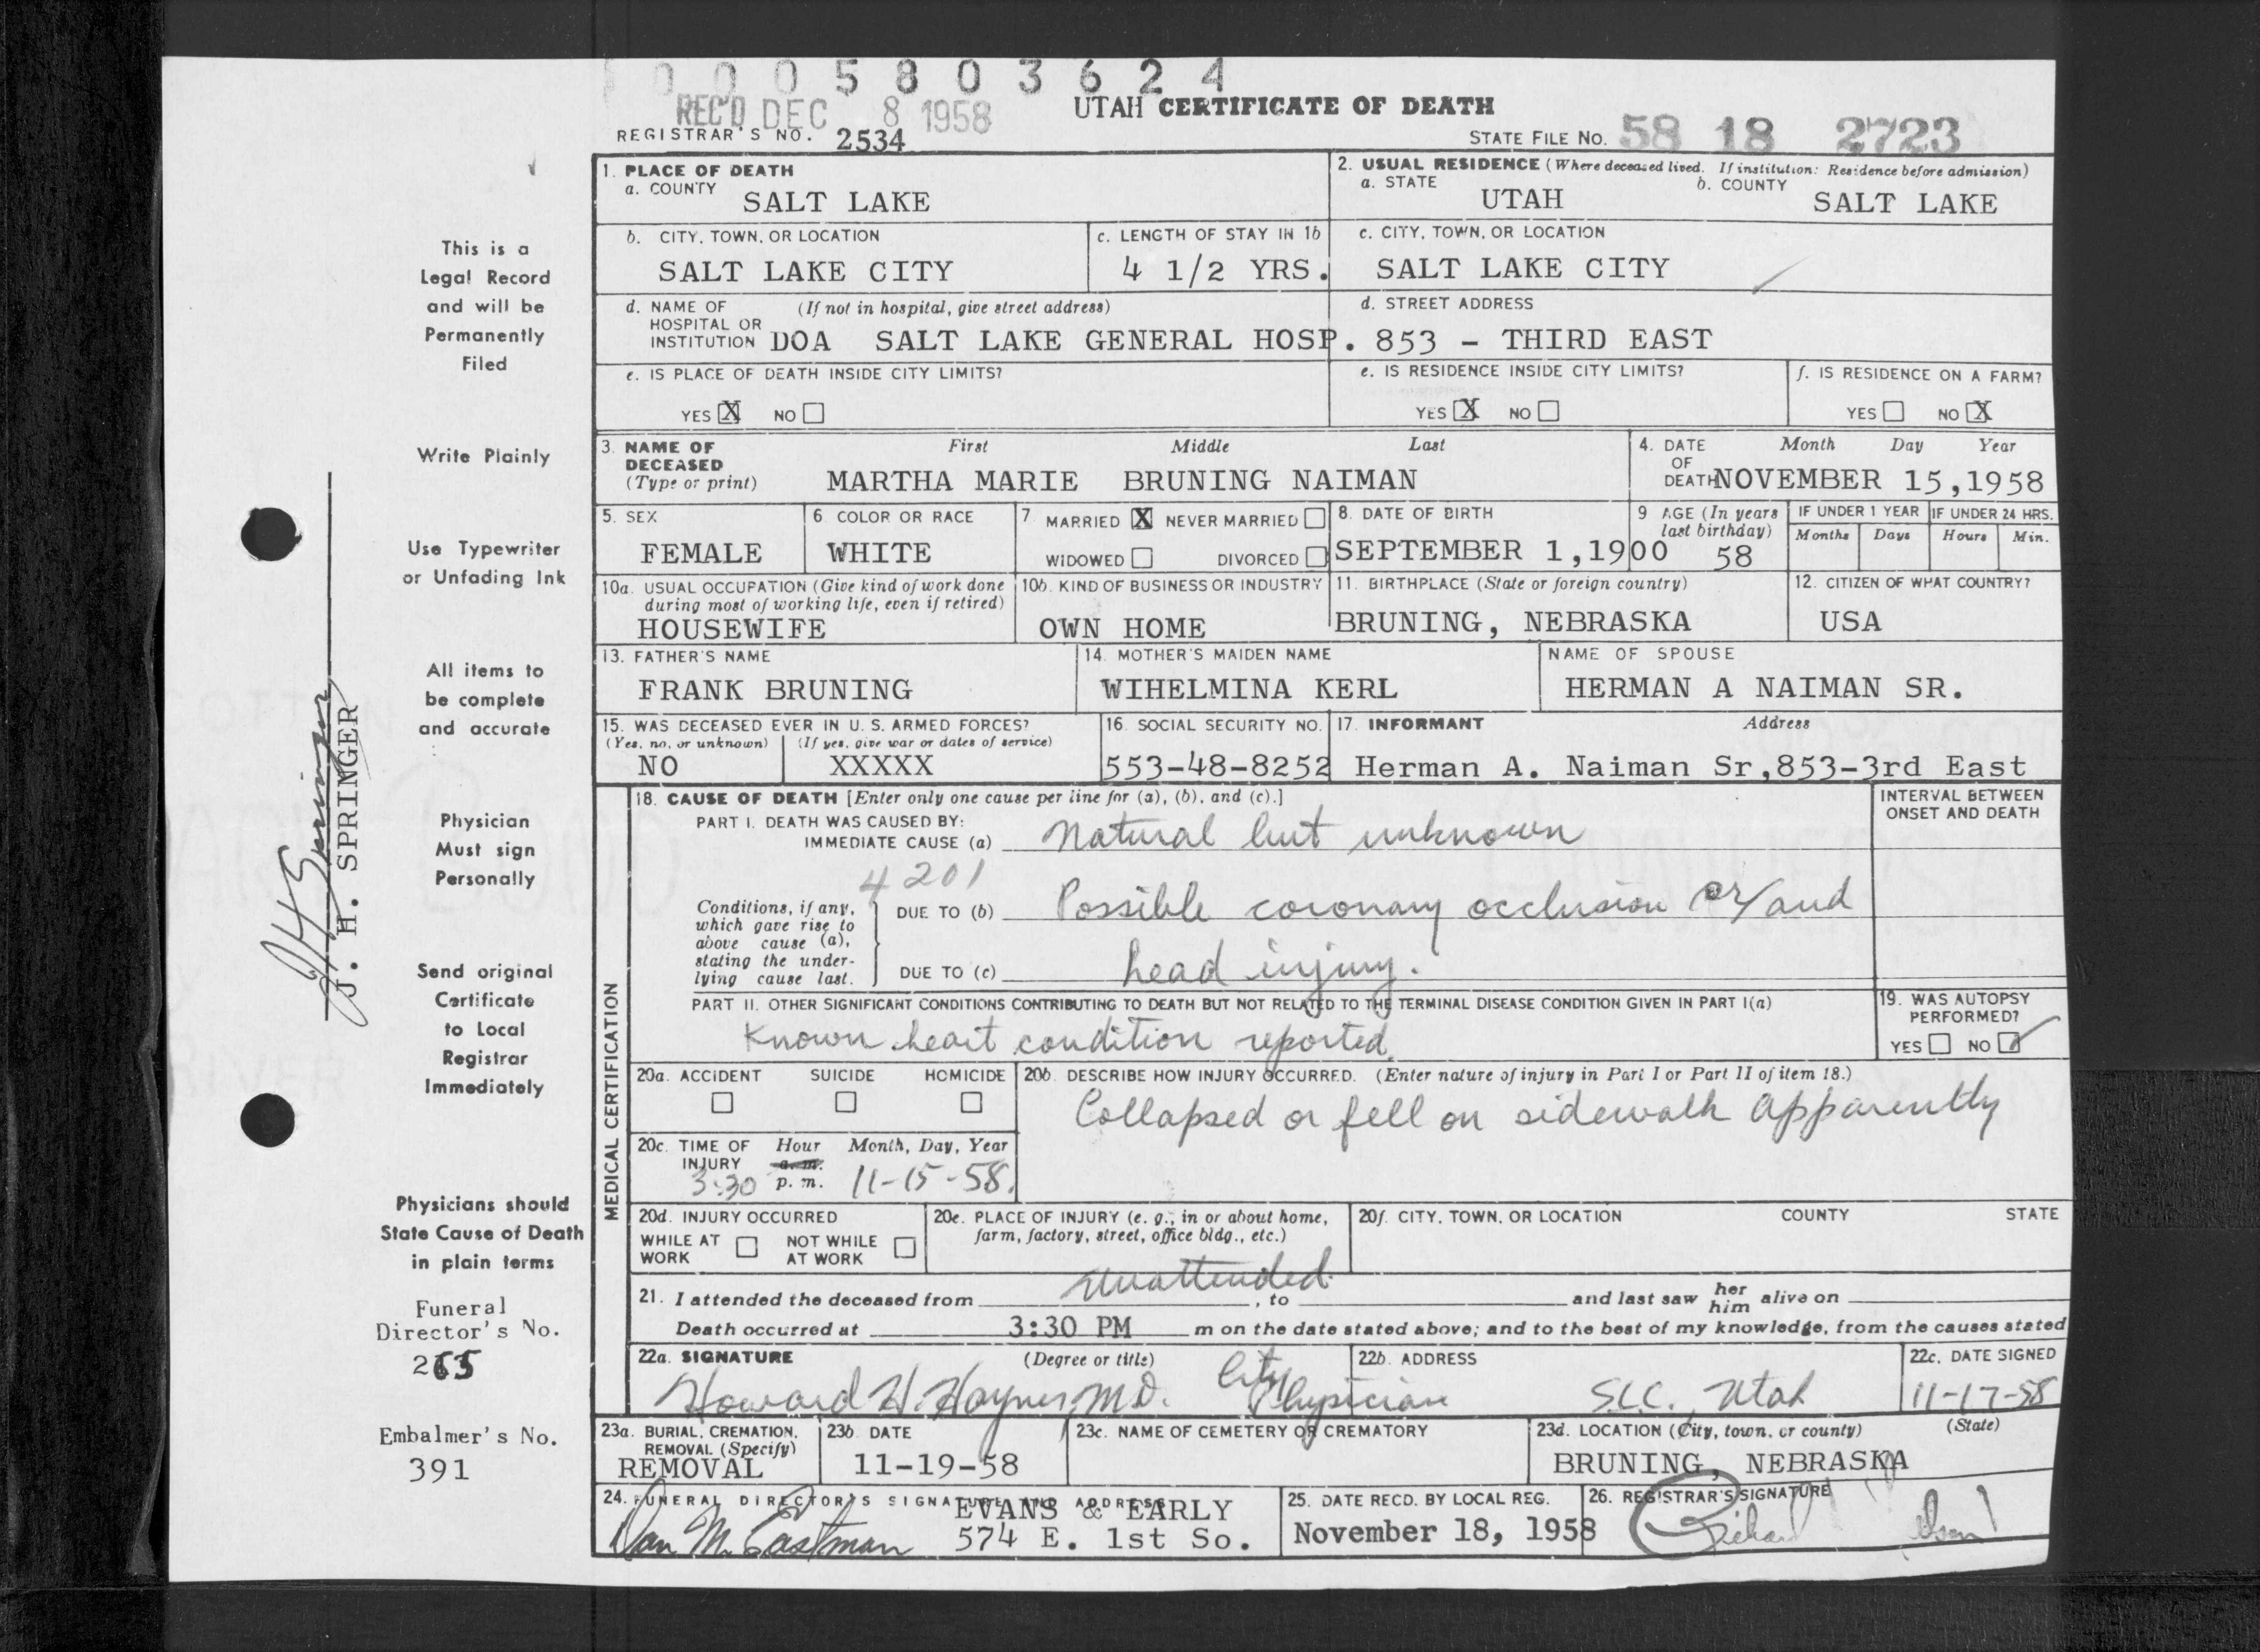 0 0 0 5 8 0 3 6 2 4
REC'D DEC 8 1958
UTAH CERTIFICATE OF DEATH
REGISTRAR'S NO. 2534
STATE FILE NO. 58 18 2723
1. PLACE OF DEATH
a. COUNTY
SALT LAKE
2. USUAL RESIDENCE (Where deceased lived. If institution: Residence before admission)
a. STATE b. COUNTY
UTAH SALT LAKE
b. CITY, TOWN, OR LOCATION
SALT LAKE CITY
c. LENGTH OF STAY IN 1b
4 1/2 YRS.
c. CITY, TOWN, OR LOCATION
SALT LAKE CITY
d. NAME OF (If not in hospital, give street address)
HOSPITAL OR
INSTITUTION DOA SALT LAKE GENERAL HOSP.
d. STREET ADDRESS
853 - THIRD EAST
e. IS PLACE OF DEATH INSIDE CITY LIMITS?
YES X NO
e. IS RESIDENCE INSIDE CITY LIMITS?
YES X NO
f. IS RESIDENCE ON A FARM?
YES NO X
3. NAME OF DECEASED (Type or print)
First Middle Last
MARTHA MARIE BRUNING NAIMAN
4. DATE OF DEATH
Month Day Year
NOVEMBER 15,1958
5. SEX
FEMALE
6. COLOR OR RACE
WHITE
7. MARRIED X NEVER MARRIED
WIDOWED DIVORCED
8. DATE OF BIRTH
SEPTEMBER 1,1900
9 AGE (In years
last birthday)
58
IF UNDER 1 YEAR IF UNDER 24 HRS.
Months Days Hours Min.
10a. USUAL OCCUPATION (Give kind of work done
during most of working life, even if retired)
HOUSEWIFE
10b. KIND OF BUSINESS OR INDUSTRY
OWN HOME
11. BIRTHPLACE (State or foreign country)
BRUNING, NEBRASKA
12. CITIZEN OF WHAT COUNTRY?
USA
13. FATHER'S NAME
FRANK BRUNING
14. MOTHER'S MAIDEN NAME
WIHELMINA KERL
NAME OF SPOUSE
HERMAN A NAIMAN SR.
15. WAS DECEASED EVER IN U. S. ARMED FORCES?
(Yes, no, or unknown) (If yes, give war or dates of service)
NO XXXXX
16. SOCIAL SECURITY NO.
553-48-8252
17. INFORMANT Address
Herman A. Naiman Sr,853-3rd East
MEDICAL CERTIFICATION
18. CAUSE OF DEATH [Enter only one cause per line for (a), (b), and (c).]
PART I. DEATH WAS CAUSED BY:
IMMEDIATE CAUSE (a) Natural but unknown
4201
Conditions, if any,
which gave rise to
above cause (a),
stating the under-
lying cause last.
DUE TO (b) Possible coronary occlusion or/and
DUE TO (c) head injury.
INTERVAL BETWEEN
ONSET AND DEATH
PART II. OTHER SIGNIFICANT CONDITIONS CONTRIBUTING TO DEATH BUT NOT RELATED TO THE TERMINAL DISEASE CONDITION GIVEN IN PART I(a)
Known heart condition reported.
19. WAS AUTOPSY
PERFORMED?
YES NO
20a. ACCIDENT SUICIDE HOMICIDE
20b. DESCRIBE HOW INJURY OCCURRED. (Enter nature of injury in Part I or Part II of item 18.)
Collapsed or fell on sidewalk apparently
20c. TIME OF Hour Month, Day, Year
INJURY a.m.
3:30 p. m. 11-15-58.
20d. INJURY OCCURRED
WHILE AT WORK NOT WHILE AT WORK
20e. PLACE OF INJURY (e. g., in or about home,
farm, factory, street, office bldg., etc.)
20f. CITY, TOWN, OR LOCATION COUNTY STATE
unattended
21. I attended the deceased from , to and last saw her him alive on
Death occurred at 3:30 PM m on the date stated above; and to the best of my knowledge, from the causes stated
22a. SIGNATURE (Degree or title)
Howard H. Hayner, M.D. City Physician
22b. ADDRESS
S.L.C. Utah
22c. DATE SIGNED
11-17-58
23a. BURIAL, CREMATION,
REMOVAL (Specify)
REMOVAL
23b. DATE
11-19-58
23c. NAME OF CEMETERY OR CREMATORY
23d. LOCATION (City, town, or county) (State)
BRUNING, NEBRASKA
24. FUNERAL DIRECTOR'S SIGNATURE AND ADDRESS
Dan M. Eastman
EVANS & EARLY
574 E. 1st So.
25. DATE RECD. BY LOCAL REG.
November 18, 1958
26. REGISTRAR'S SIGNATURE
This is a
Legal Record
and will be
Permanently
Filed
Write Plainly
Use Typewriter
or Unfading Ink
All items to
be complete
and accurate
Physician
Must sign
Personally
Send original
Certificate
to Local
Registrar
Immediately
Physicians should
State Cause of Death
in plain terms
Funeral
Director's No.
265
Embalmer's No.
391
J H Springer
J. H. SPRINGER